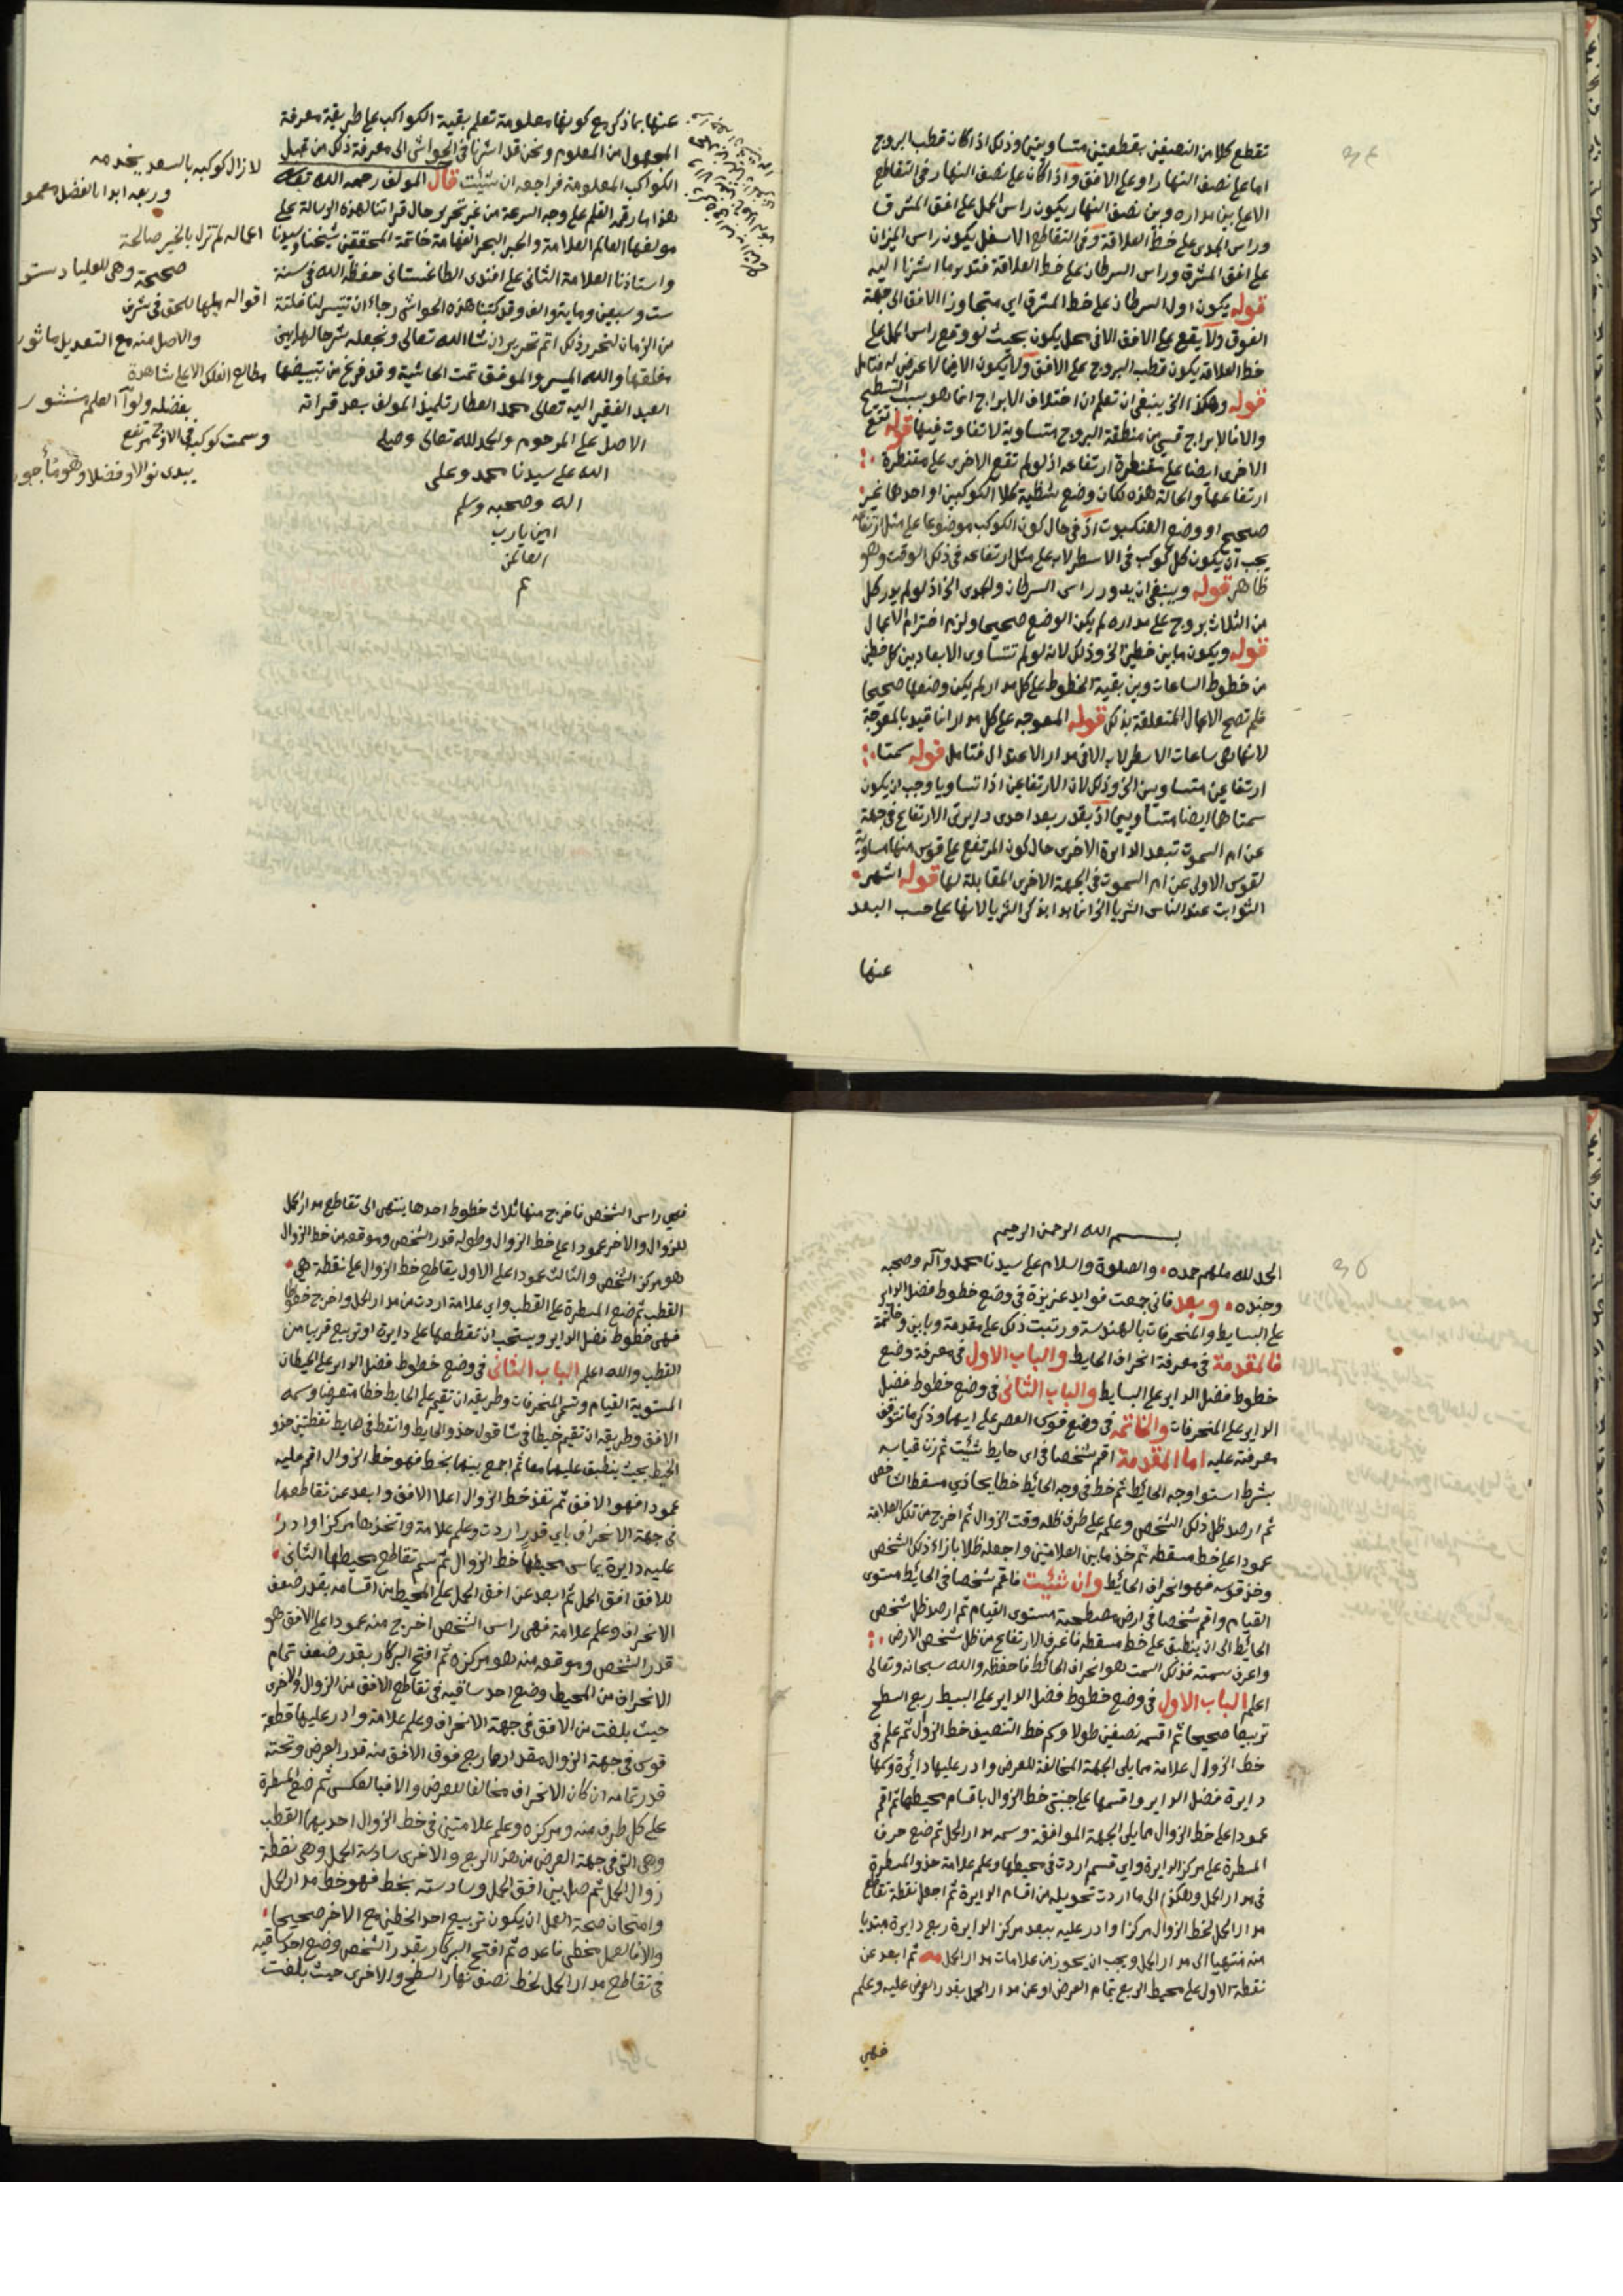 تقطع كلا من النصفين بقطعتين متساويتين وذلك اذا كان قطب البروج
اما على نصف النهار او على الافق واذا كان على نصف النهار ففي التقاطع
الاعلى بين مداره وبين نصف النهار يكون راس الحمل على افق المشرق
وراس الجدي على خط العلاقة وفي التقاطع الاسفل يكون راس الميزان
على افق المشرق وراس السرطان على خط العلاقة فتدبر ما اشرنا اليه
قوله يكون اول السرطان على خط المشرق اي متجاوزا الافق الى جهة
الفوق ولا يقع على الافق الا في محل يكون بحيث لو وقع راس الحمل على
خط العلاقة يكون قطب البروج على الافق ولا يكون الا فيما لا عرض له فتامل
قوله وهكذا الخ ينبغي ان تعلم ان اختلاف الابراج انما هو بسبب التسطيح
والا فالابراج قسي من منطقة البروج متساوية لا تفاوت فيها قوله تقع
الاخرى ايضا على مقنطرة ارتفاعه اذ لو لم تقع الاخرى على مقنطرة
ارتفاعها والحالة هذه لكان وضع شظية كلا الكوكبين او احدهما غير
صحيح او وضع العنكبوت اذ في حال كون الكوكب موضوعا على مثل ارتفاعه
يجب ان يكون كل كوكب في الاسطرلاب على مثل ارتفاعه في ذلك الوقت وهو
ظاهر قوله وينبغي ان يدور راس السرطان والجدي الخ اذ لو لم يدر كل
من الثلاث بروج على مداره لم يكن الوضع صحيحا ولزم اخترام الاعمال
قوله ويكون ما بين خطين الخ وذلك لانه لو لم تتساوى الابعاد بين كل خطين
من خطوط الساعات وبين بقية الخطوط على كل مدار لم يكن وضعها صحيحا
فلم تصح الاعمال المتعلقة بذلك قوله المعوجه على كل مدار انما قيد بالمعوجة
لانها هي ساعات الاسطرلاب الا في مدار الاعتدال فتامل قوله سمتا
ارتفاعين متساويين الخ وذلك لان الارتفاعين اذا تساويا وجب ان يكون
سمتاهما ايضا متساويين اذ بقدر بعد احدى دايرتي الارتفاع في جهة
عن اول السموت تبعد الدايرة الاخرى حال كون المرتفع على قوس منها مساوية
لقوس الاولى عن اول السموت في الجهة الاخرى المقابلة لها قوله اشهر
الثوابت عند الناس الثريا الخ انما بدا بذكر الثريا لانها على حسب البعد
عنها
عنها بما ذكر مع كونها معلومة تعلم بقية الكواكب على طريقة معرفة
المجهول من المعلوم ونحن قد اشرنا في الحواشي الى معرفة ذلك من قبل
الكواكب المعلومة فراجعه ان شئت قال المولف رحمه الله تعالى
هذا ما رقمه القلم على وجه السرعة من غير تحرير حال قراتنا لهذه الرسالة على
مولفها العالم العلامة والحبر البحر الفهامة خاتمة المحققين شيخنا وسيدنا
واستاذنا العلامة الثاني على افندى الطاغستاني حفظه الله في سنة
ست وسبعين وماية والف وقد كتبنا هذه الحواشي رجاء ان تتيسر لنا فلتة
من الزمان لنحرر ذلك اتم تحرير ان شا الله تعالى ونجعله شرحا لها يبين
مغلقها والله الميسر والموفق تمت الحاشية وقد فرغ من تبييضها
العبد الفقير اليه تعالى محمد العطار تلميذ المولف بعد قراته
الاصل على المرحوم والحمد لله تعالى وصلى
الله على سيدنا محمد وعلى
اله وصحبه وسلم
امين يا رب
العالمين
تم
لا زال كوكبه بالسعد يخدمه
وربعه ابدا بالفضل معمور
اعماله لم تزل بالخير صالحة
صحيحة وهي للعليا دستور
اقواله يليها للحق في شرف
والاصل منه مع التعديل ماثور
مطالع الفلك الاعلى شاهدة
بفضله ولوآ العلم منشور
وسمت كوكبه في الاوج مرتفع
يبدى نوالا وفضلا وهو مأجور
بسم الله الرحمن الرحيم
الحمد لله ملهم حمده والصلوة والسلام على سيدنا محمد وآله وصحبه
وجنده وبعد فاني جمعت فوايد عزيزة في وضع خطوط فضل الداير
على البسايط والمنحرفات بالهندسة ورتبت ذلك على مقدمة وبابين وخاتمة
فالمقدمة في معرفة انحراف الحايط والباب الاول في معرفة وضع
خطوط فضل الداير على البسايط والباب الثاني في وضع خطوط فضل
الداير على المنحرفات والخاتمه في وضع قوس العصر على ايهما وذكر ما تتوقف
معرفته عليه اما المقدمة اقم شخصا في اى حايط شئت ثم زن قيامه
بشرط استوا وجه الحائط ثم خط في وجه الحائط خطا يحاذي مسقط الشاخص
ثم ارصد ظل ذلك الشخص وعلم على طرف ظله وقت الزوال ثم اخرج من تلك العلامة
عمودا على خط مسقطه ثم خذ ما بين العلامتين واجعله ظلا بازاء ذلك الشخص
وخذ قوسه فهو انحراف الحائط وان شئت فاقم شخصا في الحائط مستوى
القيام واقم شخصا في ارض مسطحة مستوى القيام ثم ارصد ظل شخص
الحائط الى ان ينطبق على خط مسقطه فاعرف الارتفاع من ظل شخص الارض
واعرف سمته فذلك السمت هو انحراف الحائط فاحفظه والله سبحانه وتعالى
اعلم الباب الاول في وضع خطوط فضل الداير على البسيط ربع السطح
تربيعا صحيحا ثم اقسمه نصفين طولا وسم خط التنصيف خط الزوال ثم علم في
خط الزوال علامة مما يلي الجهة المخالفة للعرض وادر عليها دائرة وسمها
دايرة فضل الداير واقسمها على جنبتي خط الزوال باقسام محيطها ثم اقم
عمودا على خط الزوال مما يلي الجهة الموافقة وسمه مدار الحمل ثم ضع حرف
المسطرة على مركز الدايرة واي قسم اردت في محيطها وعلم علامة حذو المسطرة
في مدار الحمل وهكذا الى ما اردت تحويله من اقسام الدايرة ثم اجعل نقطة تقاطع
مدار الحمل لخط الزوال مركزا وادر عليه ببعد مركز الدايرة ربع دايرة مبتديا
منه منتهيا الى مدار الحمل ويجب ان يجوز من علامات مدار الحمل مه ثم ابعد عن
نقطة الاول على محيط الربع بتمام العرض او عن مدار الحمل بقدر العرض عليه وعلم
فهي
فهي راس الشخص فاخرج منها ثلاث خطوط احدها ينتهى الى تقاطع مدار الحمل
للزوال والاخر عمودا على خط الزوال وطوله قدر الشخص وموقعه من خط الزوال
هو مركز الشخص والثالث عمودا على الاول يقاطع خط الزوال على نقطة هي
القطب ثم ضع المسطرة على القطب واي علامة اردت من مدار الحمل واخرج خطوطا
فهى خطوط فضل الداير ويستحب ان تقطعها على دايرة او تربيع قريبا من
القطب والله اعلم الباب الثاني في وضع خطوط فضل الداير على الحيطان
المستوية القيام وتسمى المنحرفات وطريقه ان تقيم على الحايط خطا معترضا وسمه
الافق وطريقه ان تقيم خيطا في شاقول حذو الحايط وانقط في الحايط نقطتين حذو
الخيط بحيث ينطبق عليهما معا ثم اجمع بينهما بخط فهو خط الزوال اقم عليه
عمودا فهو الافق ثم نفذ خط الزوال اعلا الافق وابعد عن تقاطعهما
في جهة الانحراف باي قدر اردت وعلم علامة واتخذها مركزا وادر
عليه دايرة يماس محيطها خط الزوال ثم سم تقاطع محيطها الثاني
للافق افق الحمل ثم ابعد عن افق الحمل على المحيط من اقسامه بقدر ضعف
الانحراف وعلم علامة فهى راس الشخص اخرج منه عمودا على الافق هو
قدر الشخص وموقعه منه هو مركزه ثم افتح البركار بقدر ضعف تمام
الانحراف من المحيط وضع احد ساقيه في تقاطع الافق من الزوال والاخرى
حيث بلغت من الافق في جهة الانحراف وعلم علامة وادر عليها قطعة
قوس في جهة الزوال مقدارها ربع فوق الافق منه قدر العرض وتحته
قدر تمامه ان كان الانحراف مخالفا للعرض والا فبالعكس ثم ضع المسطرة
على كل طرف منه ومركزه وعلم علامتين في خط الزوال احديهما القطب
وهي التي في جهة العرض من هذا الربع والاخرى سادسة الحمل وهي نقطة
زوال الحمل ثم صل بين افق الحمل وسادسته بخط فهو خط مدار الحمل
وامتحان صحة العمل ان يكون تربيع احد الخطين مع الاخر صحيحا
والا فالعمل مخطى فاعده ثم افتح البركار بقدر الشخص وضع احد ساقيه
في تقاطع مدار الحمل لخط نصف نهار السطح والاخرى حيث بلغت